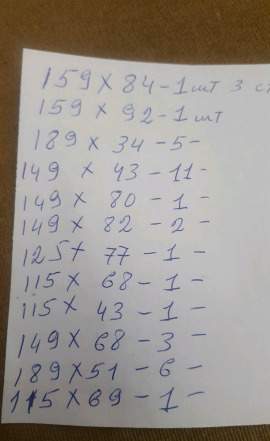 159 x 84 - 1 шт 3 ст
159 x 92 - 1 шт
189 x 34 - 5 -
149 x 43 - 11 -
149 x 80 - 1 -
149 x 82 - 2 -
125 x 77 - 1 -
115 x 68 - 1 -
115 x 43 - 1 -
149 x 68 - 3 -
189 x 51 - 6 -
115 x 69 - 1 -